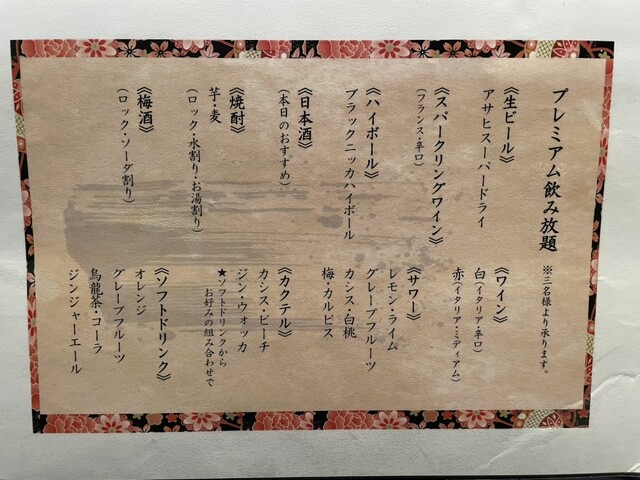 プレミアム飲み放題
※三名様より承ります。
《生ビール》
アサヒスーパードライ
《スパークリングワイン》
(フランス・辛口)
《ハイボール》
ブラックニッカハイボール
《日本酒》
(本日のおすすめ)
《焼酎》
芋・麦
(ロック・水割り・お湯割り)
《梅酒》
(ロック・ソーダ割り)
《ワイン》
白(イタリア・辛口)
赤(イタリア・ミディアム)
《サワー》
レモン・ライム
グレープフルーツ
カシス・白桃
梅・カルピス
《カクテル》
カシス・ピーチ
ジン・ウォッカ
★ソフトドリンクから
お好みの組み合わせで
《ソフトドリンク》
オレンジ
グレープフルーツ
烏龍茶・コーラ
ジンジャーエール